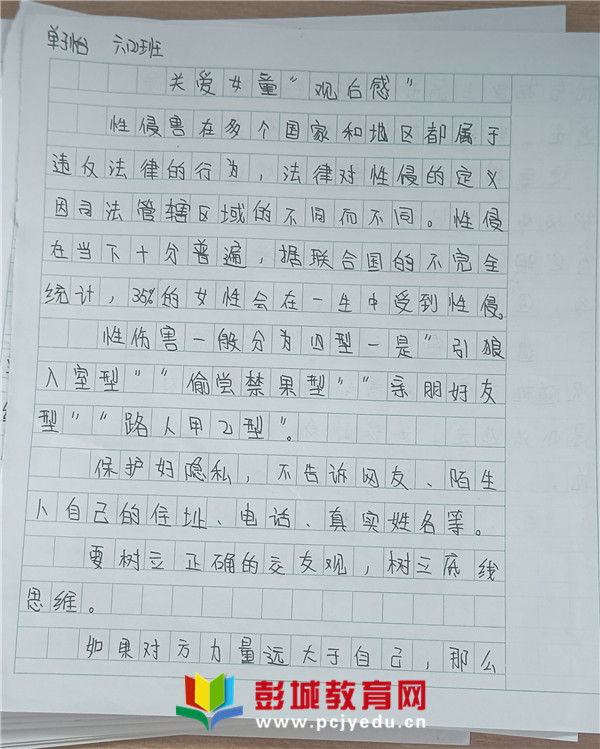 单子怡 六(2)班
关爱女童“观后感”
性侵害在多个国家和地区都属于
违反法律的行为，法律对性侵的定义
因司法管辖区域的不同而不同。性侵
在当下十分普遍，据联合国的不完全
统计，35%的女性会在一生中受到性侵。
性伤害一般分为四型一是“引狼
入室型”“偷尝禁果型”“亲朋好友
型”“路人甲乙型”。
保护好隐私，不告诉网友、陌生
人自己的住址、电话、真实姓名等。
要树立正确的交友观，树立底线
思维。
如果对方力量远大于自己，那么
彭城教育网
www.pcjyedu.cn